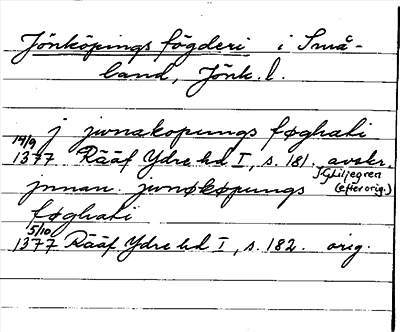 Jönköpings fögderi i Små-
land, Jönk. l.
j junakopungs føghati
14/9
1377 Rääf Ydre hd I, s. 181. avskr.
J G Liljegren
(efter orig.)
jnnan junøkøpungs
føghati
5/10
1377 Rääf Ydre hd I, s. 182. orig.